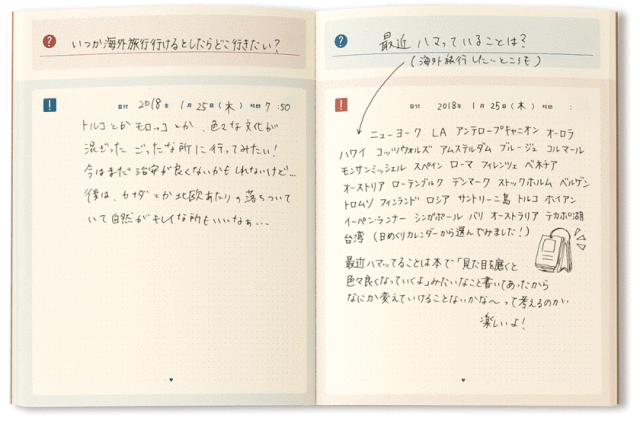 ? いつか海外旅行行けるとしたらどこ行きたい?
! 日付 2018年 1月25日(木) 時間 7:50
トルコとかモロッコとか、色々な文化が
混ざった ごった な所に行ってみたい!
今はまだ治安が良くないかもしれないけど…
後は、カナダとか北欧あたりの落ちついて
いて自然がキレイな所もいいなぁ…
? 最近ハマっていることは?
(海外旅行したいところも)
! 日付 2018年 1月25日(木) 時間 :
ニューヨーク LA アンテロープキャニオン オーロラ
ハワイ コッツウォルズ アムステルダム ブルージュ コルマール
モンサンミッシェル スペイン ローマ フィレンツェ ベネチア
オーストリア ローテンブルク デンマーク ストックホルム ベルゲン
トロムソ フィンランド ロシア サントリーニ島 トルコ ホイアン
イーペン・ランナー シンガポール バリ オーストラリア テカポ湖
台湾 (日めくりカレンダーから選んでみました!)
最近ハマってることは本で「見た目を磨くと
色々良くなっていくよ」みたいなこと書いてあったから
なにか変えていけることないかな〜って考えるのが
楽しいよ!